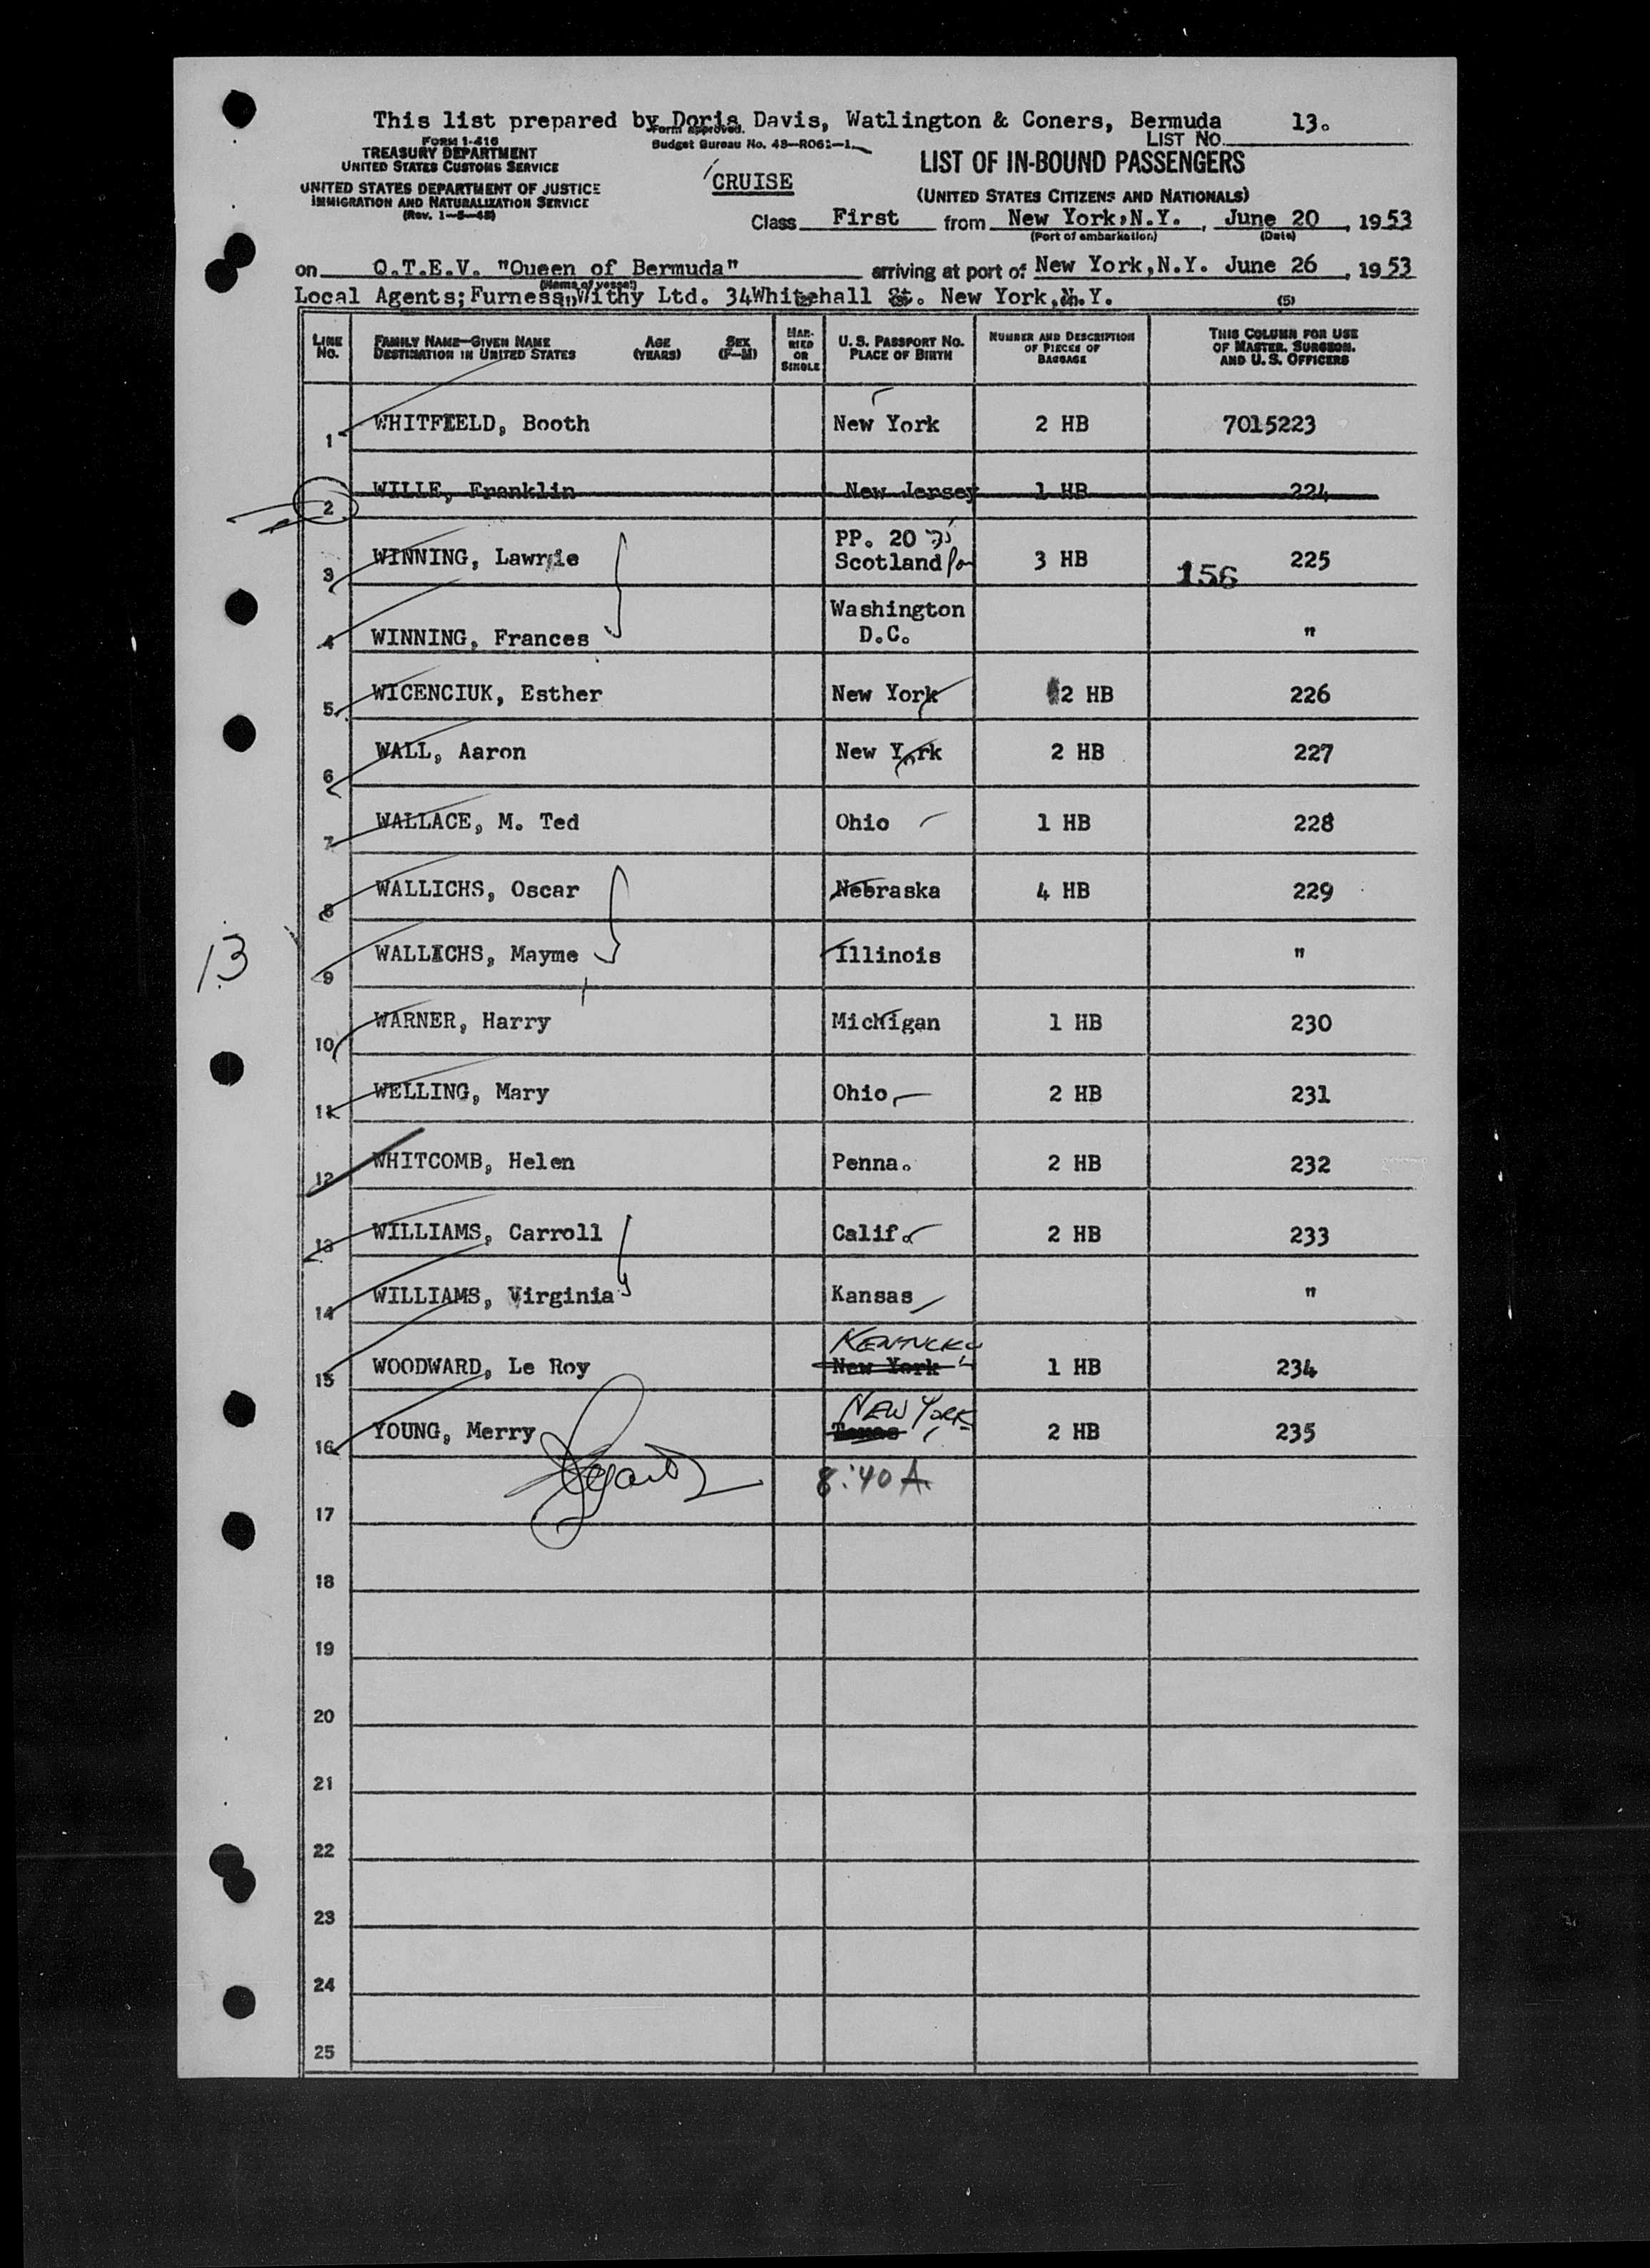 This list prepared by Doris Davis, Watlington & Coners, Bermuda 13.
FORM I-416
TREASURY DEPARTMENT
UNITED STATES CUSTOMS SERVICE
UNITED STATES DEPARTMENT OF JUSTICE
IMMIGRATION AND NATURALIZATION SERVICE
Form approved.
Budget Bureau No. 43-R061-1.
CRUISE
LIST NO.
LIST OF IN-BOUND PASSENGERS
(UNITED STATES CITIZENS AND NATIONALS)
Class First from New York, N.Y., June 20, 1953
(Port of embarkation) (Date)
on Q.T.E.V. "Queen of Bermuda" arriving at port of New York, N.Y. June 26, 1953
(Name of vessel)
Local Agents; Furness, Withy Ltd. 34 Whitehall St. New York, N.Y.
(5)
LINE NO. FAMILY NAME—GIVEN NAME DESTINATION IN UNITED STATES AGE (YEARS) SEX (F—M) MARRIED OR SINGLE U. S. PASSPORT NO. PLACE OF BIRTH NUMBER AND DESCRIPTION OF PIECES OF BAGGAGE THIS COLUMN FOR USE OF MASTER, SURGEON, AND U. S. OFFICERS
1 WHITFIELD, Booth New York 2 HB 7015223
2 WILLE, Franklin New Jersey 1 HB 224
3 WINNING, Lawrie PP. 20 Scotland 3 HB 156 225
4 WINNING, Frances Washington D.C. "
5 WICENCIUK, Esther New York 2 HB 226
6 WALL, Aaron New York 2 HB 227
7 WALLACE, M. Ted Ohio 1 HB 228
8 WALLICHS, Oscar Nebraska 4 HB 229
13
9 WALLICHS, Mayme Illinois "
10 WARNER, Harry Michigan 1 HB 230
11 WELLING, Mary Ohio 2 HB 231
12 WHITCOMB, Helen Penna. 2 HB 232
13 WILLIAMS, Carroll Calif. 2 HB 233
14 WILLIAMS, Virginia Kansas "
15 WOODWARD, Le Roy KENTUCKY New York 1 HB 234
16 YOUNG, Merry NEW YORK Texas 2 HB 235
8:40 A
17
18
19
20
21
22
23
24
25